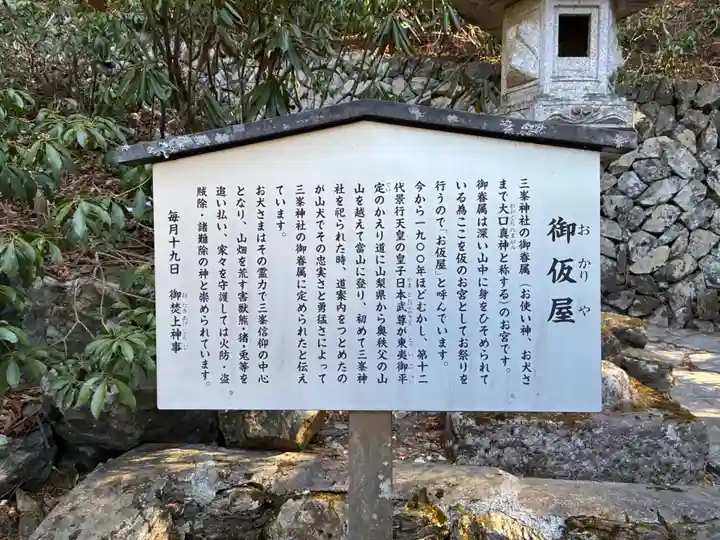 御仮屋
おかりや
三峯神社の御眷属（お使い神、お犬さ
まで大口真神と称する）のお宮です。
御眷属は深い山中に身をひそめられて
いる為ここを仮のお宮としてお祭りを
行うので「お仮屋」と呼んでいます。
今から一九〇〇年ほどむかし、第十二
代景行天皇の皇子日本武尊が東夷御平
定のかえり道に山梨県から奥秩父の山
山を越えて当山に登り、初めて三峯神
社を祀られた時、道案内をつとめたの
が山犬でその忠実さと勇猛さによって
三峯神社の御眷属に定められたと伝え
ています。
お犬さまはその霊力で三峯信仰の中心
となり、山畑を荒す害獣熊・猪・兎等を
追い払い、家々を守護しては火防・盗
賊除・諸難除の神と崇められています。
毎月十九日　御焚上神事